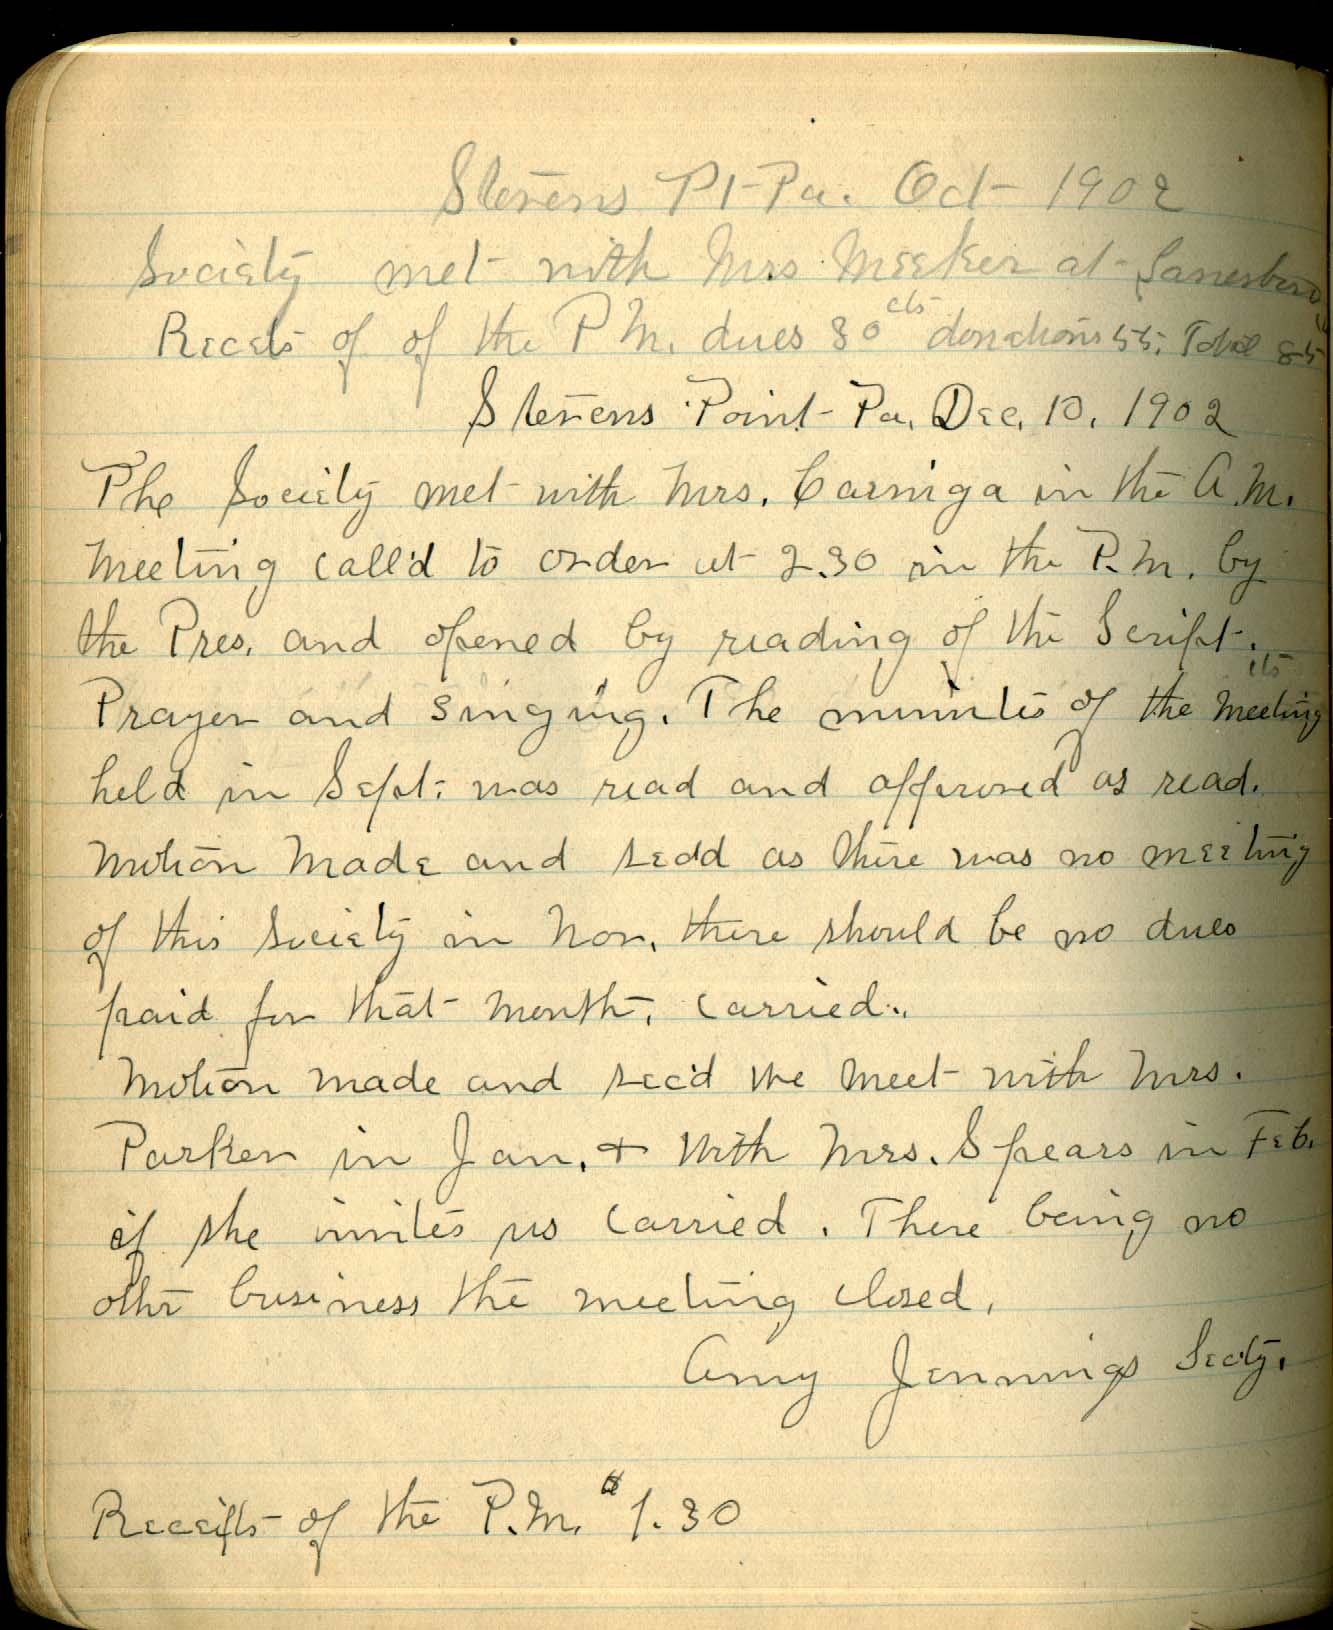 Stevens Pt Pa. Oct 1902
Society met with Mrs Meeker at Lanesboro
Recets of of the P M. dues 30 cts donations 55. Total 85
Stevens Point Pa. Dec. 10. 1902
The Society met with Mrs. Carniga in the A.M.
Meeting call'd to order at 2.30 in the P.M. by
the Pres. and opened by reading of the Script.
Prayer and singing. The minutes of the meeting
held in Sept. was read and approved as read.
Motion made and secd as there was no meeting
of this Society in Nov. there should be no dues
paid for that month, carried.
Motion made and sec'd we meet with Mrs.
Parker in Jan. + with Mrs. Spears in Feb.
if she invites us carried. There being no
other business the meeting closed.
Amy Jennings Secty.
Receipts of the P.M. $1.30